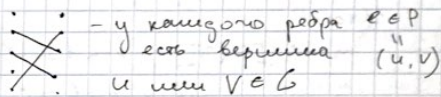 - у каждого ребра e ∈ P
есть вершина (u, v)
u или v ∈ C